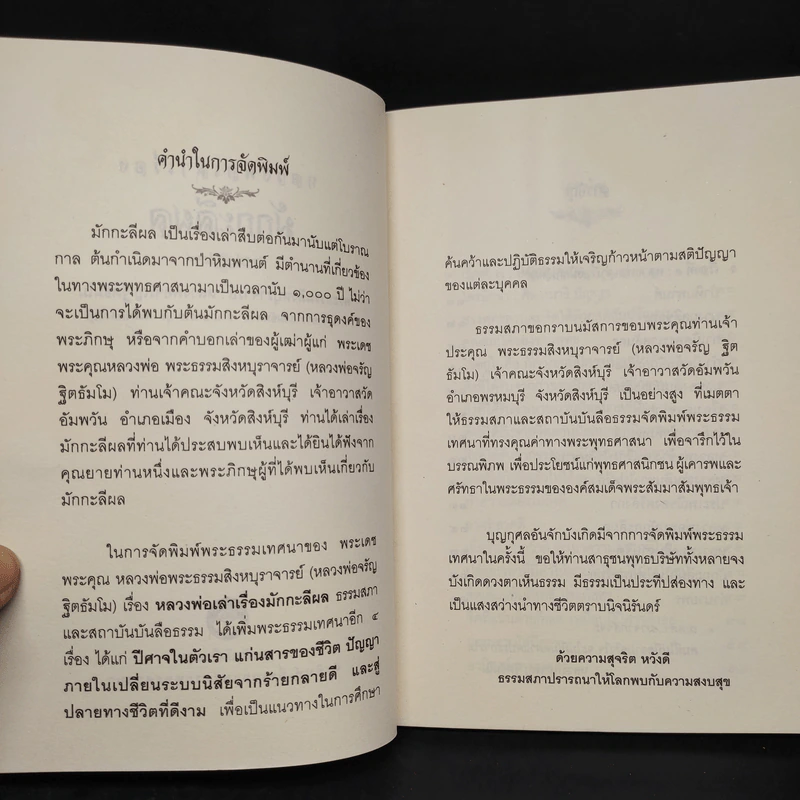 คำนำในการจัดพิมพ์
มักกะลีผล เป็นเรื่องเล่าสืบต่อกันมานับแต่โบราณ
กาล ต้นกำเนิดมาจากป่าหิมพานต์ มีตำนานที่เกี่ยวข้อง
ในทางพระพุทธศาสนามาเป็นเวลานับ ๑,๐๐๐ ปี ไม่ว่า
จะเป็นการได้พบกับต้นมักกะลีผล จากการธุดงค์ของ
พระภิกษุ หรือจากคำบอกเล่าของผู้เฒ่าผู้แก่ พระเดช
พระคุณหลวงพ่อ พระธรรมสิงหบุราจารย์ (หลวงพ่อจรัญ
ฐิตธัมโม) ท่านเจ้าคณะจังหวัดสิงห์บุรี เจ้าอาวาสวัด
อัมพวัน อำเภอเมือง จังหวัดสิงห์บุรี ท่านได้เล่าเรื่อง
มักกะลีผลที่ท่านได้ประสบพบเห็นและได้ยินได้ฟังจาก
คุณยายท่านหนึ่งและพระภิกษุผู้ที่ได้พบเห็นเกี่ยวกับ
มักกะลีผล
ในการจัดพิมพ์พระธรรมเทศนาของ พระเดช
พระคุณ หลวงพ่อพระธรรมสิงหบุราจารย์ (หลวงพ่อจรัญ
ฐิตธัมโม) เรื่อง หลวงพ่อเล่าเรื่องมักกะลีผล ธรรมสภา
และสถาบันบันลือธรรม ได้เพิ่มพระธรรมเทศนาอีก ๔
เรื่อง ได้แก่ ปีศาจในตัวเรา แก่นสารของชีวิต ปัญญา
ภายในเปลี่ยนระบบนิสัยจากร้ายกลายดี และสู่
ปลายทางชีวิตที่ดีงาม เพื่อเป็นแนวทางในการศึกษา
ค้นคว้าและปฏิบัติธรรมให้เจริญก้าวหน้าตามสติปัญญา
ของแต่ละบุคคล
ธรรมสภาขอกราบนมัสการขอบพระคุณท่านเจ้า
ประคุณ พระธรรมสิงหบุราจารย์ (หลวงพ่อจรัญ ฐิต
ธัมโม) เจ้าคณะจังหวัดสิงห์บุรี เจ้าอาวาสวัดอัมพวัน
อำเภอพรหมบุรี จังหวัดสิงห์บุรี เป็นอย่างสูง ที่เมตตา
ให้ธรรมสภาและสถาบันบันลือธรรมจัดพิมพ์พระธรรม
เทศนาที่ทรงคุณค่าทางพระพุทธศาสนา เพื่อจารึกไว้ใน
บรรณพิภพ เพื่อประโยชน์แก่พุทธศาสนิกชน ผู้เคารพและ
ศรัทธาในพระธรรมขององค์สมเด็จพระสัมมาสัมพุทธเจ้า
บุญกุศลอันจักบังเกิดมีจากการจัดพิมพ์พระธรรม
เทศนาในครั้งนี้ ขอให้ท่านสาธุชนพุทธบริษัททั้งหลายจง
บังเกิดดวงตาเห็นธรรม มีธรรมเป็นประทีปส่องทาง และ
เป็นแสงสว่างนำทางชีวิตตราบนิจนิรันดร์
ด้วยความสุจริต หวังดี
ธรรมสภาปรารถนาให้โลกพบกับความสงบสุข